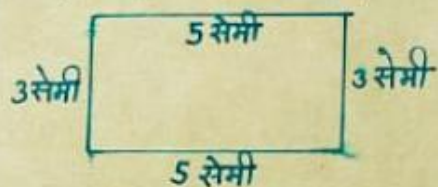 5 सेमी
3सेमी
3 सेमी
5 सेमी